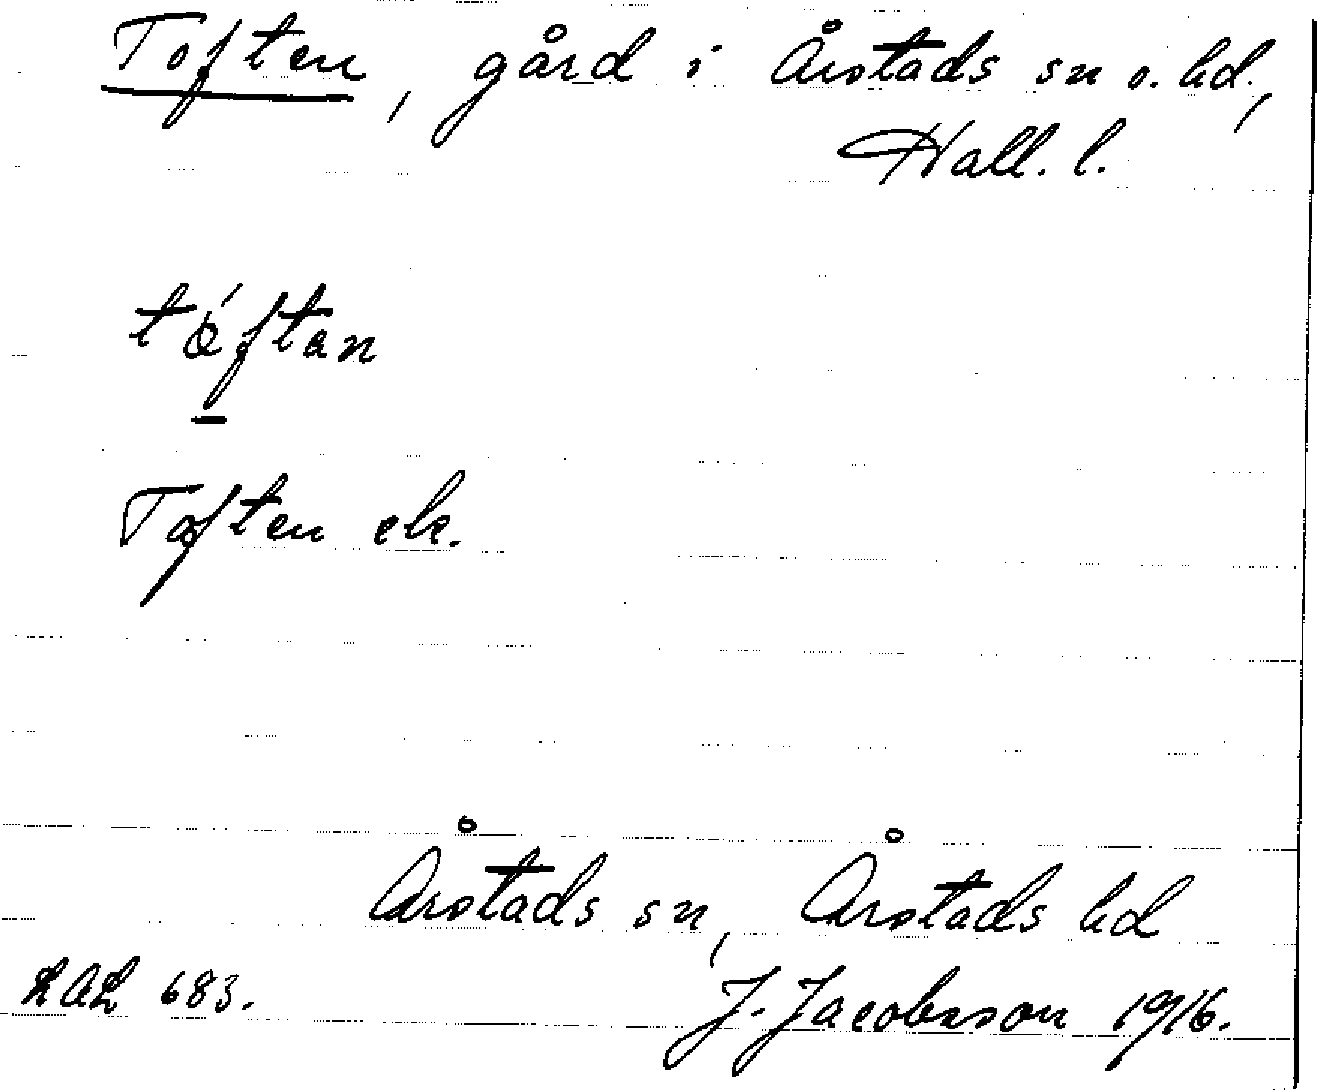 Toften, gård i Årstads sn o. hd.,
Hall. l.
Toften ek.
Årstads sn, Årstads hd
LAL 683. J. Jacobsson 1916.